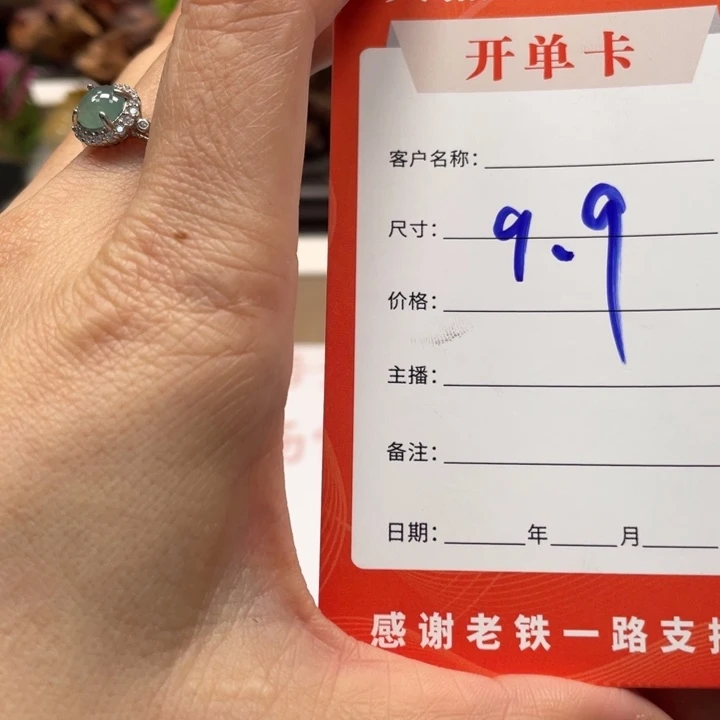 开单卡
客户名称：
尺寸：
9.9
价格：
主播：
备注：
日期：年月
感谢老铁一路支持